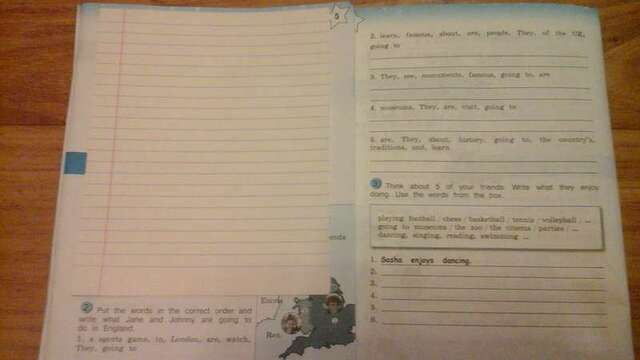 5
ends
2 Put the words in the correct order and
write what Jane and Johnny are going to
do in England.
1. a sports game, in, London, are, watch,
They, going to
2. learn, famous, about, are, people, They, of the UK,
going to
3. They, see, monuments, famous, going to, are
4. museums, They, are, visit, going to
5. are, They, about, history, going to, the country's,
traditions, and, learn
3 Think about 5 of your friends. Write what they enjoy
doing. Use the words from the box.
playing football / chess / basketball / tennis / volleyball / ...
going to museums / the zoo / the cinema / parties / ...
dancing, singing, reading, swimming ...
1. Sasha enjoys dancing.
2.
3.
4.
5.
6.